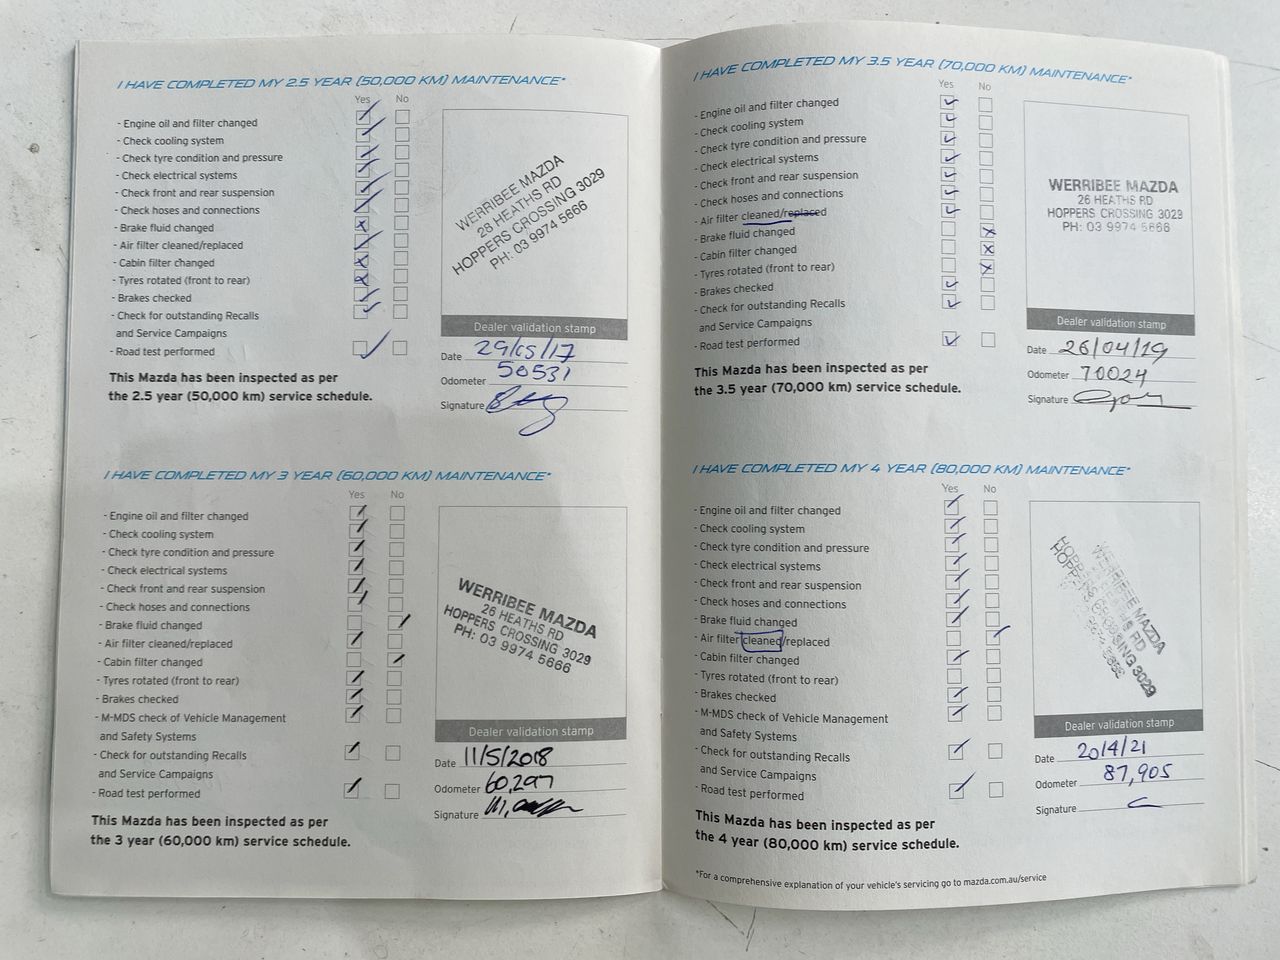 I HAVE COMPLETED MY 2.5 YEAR (50,000 KM) MAINTENANCE*
Yes No
- Engine oil and filter changed
- Check cooling system
- Check tyre condition and pressure
- Check electrical systems
- Check front and rear suspension
- Check hoses and connections
- Brake fluid changed
- Air filter cleaned/replaced
- Cabin filter changed
- Tyres rotated (front to rear)
- Brakes checked
- Check for outstanding Recalls
and Service Campaigns
- Road test performed
This Mazda has been inspected as per
the 2.5 year (50,000 km) service schedule.
WERRIBEE MAZDA
26 HEATHS RD
HOPPERS CROSSING 3029
PH: 03 9974 5666
Dealer validation stamp
Date 29/05/17
Odometer 50531
Signature
I HAVE COMPLETED MY 3 YEAR (60,000 KM) MAINTENANCE*
Yes No
- Engine oil and filter changed
- Check cooling system
- Check tyre condition and pressure
- Check electrical systems
- Check front and rear suspension
- Check hoses and connections
- Brake fluid changed
- Air filter cleaned/replaced
- Cabin filter changed
- Tyres rotated (front to rear)
- Brakes checked
- M-MDS check of Vehicle Management
and Safety Systems
- Check for outstanding Recalls
and Service Campaigns
- Road test performed
This Mazda has been inspected as per
the 3 year (60,000 km) service schedule.
WERRIBEE MAZDA
26 HEATHS RD
HOPPERS CROSSING 3029
PH: 03 9974 5666
Dealer validation stamp
Date 11/5/2018
Odometer 60,297
Signature
I HAVE COMPLETED MY 3.5 YEAR (70,000 KM) MAINTENANCE*
Yes No
- Engine oil and filter changed
- Check cooling system
- Check tyre condition and pressure
- Check electrical systems
- Check front and rear suspension
- Check hoses and connections
- Air filter cleaned/replaced
- Brake fluid changed
- Cabin filter changed
- Tyres rotated (front to rear)
- Brakes checked
- Check for outstanding Recalls
and Service Campaigns
- Road test performed
This Mazda has been inspected as per
the 3.5 year (70,000 km) service schedule.
WERRIBEE MAZDA
26 HEATHS RD
HOPPERS CROSSING 3029
PH: 03 9974 5666
Dealer validation stamp
Date 26/04/19
Odometer 70024
Signature
I HAVE COMPLETED MY 4 YEAR (80,000 KM) MAINTENANCE*
Yes No
- Engine oil and filter changed
- Check cooling system
- Check tyre condition and pressure
- Check electrical systems
- Check front and rear suspension
- Check hoses and connections
- Brake fluid changed
- Air filter cleaned/replaced
- Cabin filter changed
- Tyres rotated (front to rear)
- Brakes checked
- M-MDS check of Vehicle Management
and Safety Systems
- Check for outstanding Recalls
and Service Campaigns
- Road test performed
This Mazda has been inspected as per
the 4 year (80,000 km) service schedule.
WERRIBEE MAZDA
HOPPERS CROSSING 3029
Dealer validation stamp
Date 20/4/21
Odometer 87,905
Signature
*For a comprehensive explanation of your vehicle's servicing go to mazda.com.au/service